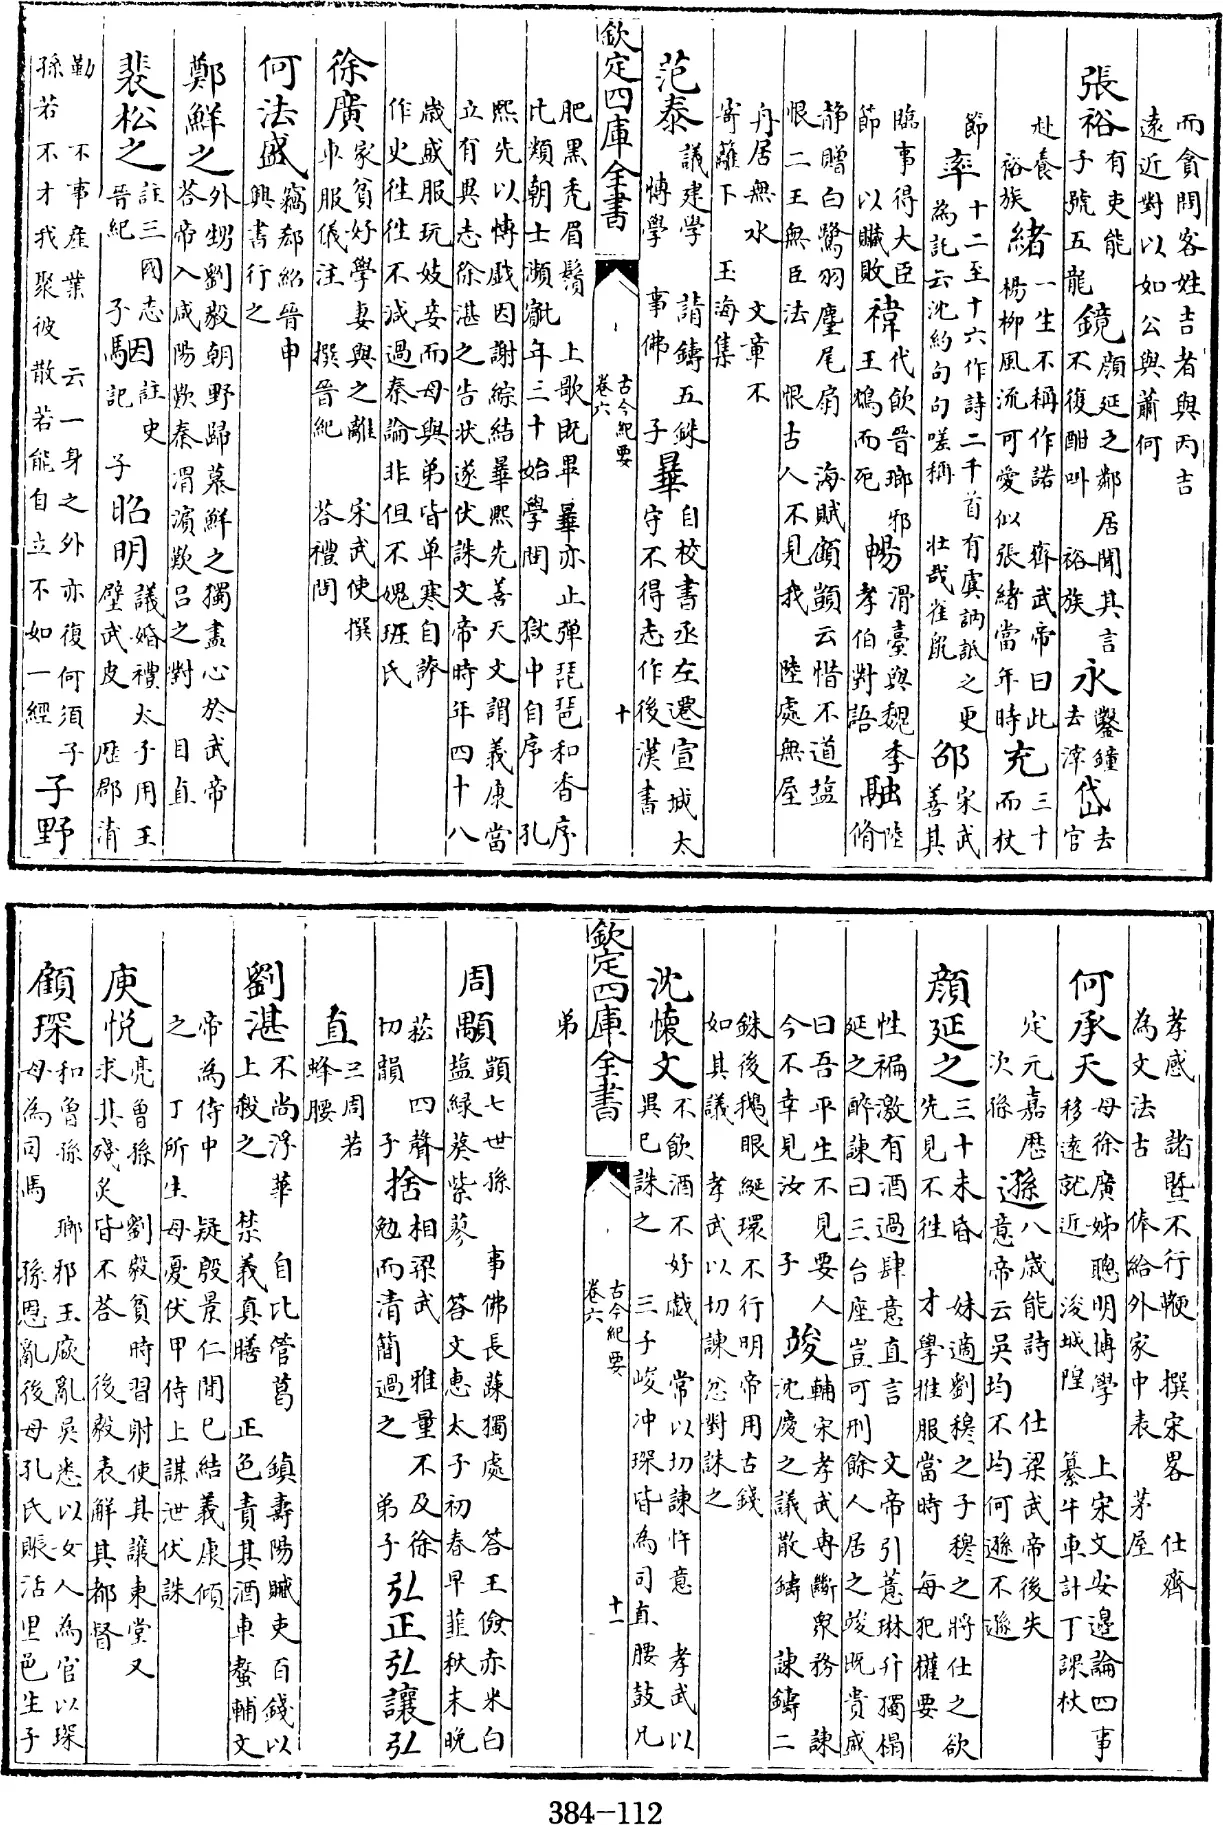 而貪問客姓吉者與丙吉
遠近對以如公與蕭何
張裕有吏能子號五龍 鏡顔延之鄰居聞其言不復酣叫 裕族 永鑿鐘去滓 岱去官
赴養 裕族 緒一生不稱作諾 齊武帝曰此楊柳風流可愛似張緒當年時 充三十而杖
節 率十二至十六作詩二千首有虞訥詆之更為託云沈約句句嗟稱 壯哉雀䑕 邵宋武善其
臨事得大臣節 以贓敗 禕代飲晉瑯邪王鴆而死 暢滑臺與魏李孝伯對語 融陸脩
静贈白鷺羽麈尾扇 海賦顧顗云惜不道塩
恨二王無臣法 恨古人不見我 陸處無屋
舟居無水 文章不
寄蘺下 玉海集
范泰議建學 請鑄五銖博學 事佛 子曅自校書丞左遷宣城太守不得志作後漢書
欽定四庫全書
古今紀要
卷六
十
肥黑秃眉鬚 上歌既畢曅亦止弹琵琶和香序
比類朝士瀕 年三十始學問 獄中自序 孔
熙先以博戲因謝綜結曅熙先善天文謂義康當
立有異志徐湛之告状遂伏誅文帝時年四十八
歲盛服玩妓妾而母與弟皆单寒自謗
作史往往不減過秦論非但不媿班氏
徐廣家貧好學妻與之離 宋武使撰車服儀注 撰晉紀 荅禮問
何法盛竊郗紹晉中興書行之
鄭鮮之外甥劉毅朝野歸慕鮮之獨盡心於武帝荅帝入咸陽歎秦渭濱歎吕之對 目直
裴松之註三國志晉紀 子駰因註史記 子昭明議婚禮太子用王璧武皮 歴郡清
勤 不事産業 云一身之外亦復何須子孫若不才我聚彼散若能自立不如一經 子野
孝感 諸暨不行鞭 撰宋畧 仕齊
為文法古 俸給外家中表 茅屋
何承天母徐廣姊聰明博學 上宋文安邉論四事移遠就近 浚城隍 纂牛車計丁課杖
定元嘉歴 次孫 遜八歳能詩 仕梁武帝後失意帝云吳均不均何遜不遜
顔延之三十未昏 妹適劉穆之子穆之將仕之欲先見不往 才學雅服當時 每犯權要
性褊激有酒過肆意直言 文帝引慧琳升獨榻
延之醉諫曰三台座豈可刑餘人居之竣既貴戚
曰吾平生不見要人今不幸見汝 子竣輔宋孝武専斷衆務 諫沈慶之議散鑄 諫鑄二
銖後鵝眼綖環不行明帝用古錢
如其議 孝武以切諫忿對誅之
沈懷文不飲酒不好戲 常以切諫忤意 孝武以異已誅之 三子峻冲琛皆為司直腰鼓兄
欽定四庫全書
古今紀要
卷六
十一
弟
周顒顗七世孫 事佛長蔬獨處 答王儉赤米白塩緑葵紫蓼 答文惠太子初春早韮秋末晚
菘 四聲切韻 子捨相梁武 雅量不及徐勉而清簡過之 弟子弘正弘讓弘
直三周若蜂腰
劉湛不尚浮華 自比管葛 鎮壽陽贓吏百錢以上殺之 禁義真膳 正色責其酒車螯輔文
帝為侍中 疑殷景仁間已結義康傾
之 丁所生母憂伏甲侍上謀泄伏誅
庾悅亮曾孫 劉毅貧時習射使其讓東堂又求其殘炙皆不荅 後毅表解其都督
顧琛和曾孫 瑯邪王廞亂吳悉以女人為官以琛母為司馬 孫恩亂後母孔氏賑活里邑生子
384-112